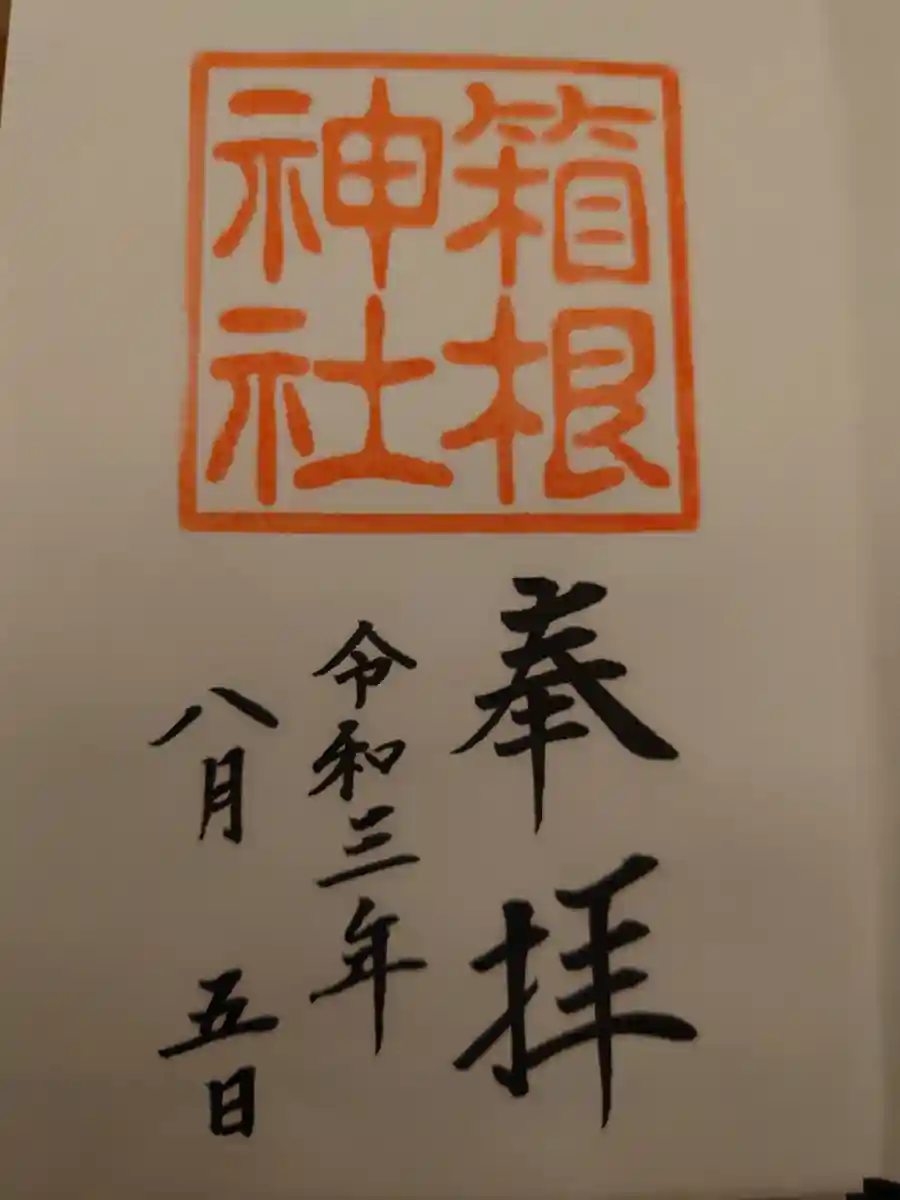 箱根
神社
奉拝
令和三年
八月 五日